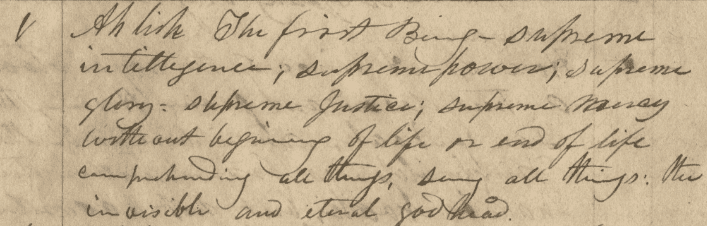 Ah lish The first Being - supreme
intillegence; supreme power; supreme
glory = supreme Justice; supreme mercy
without begining of life or end of life
comprehending all things, seeing all things: the
invisible and eternal godhead.